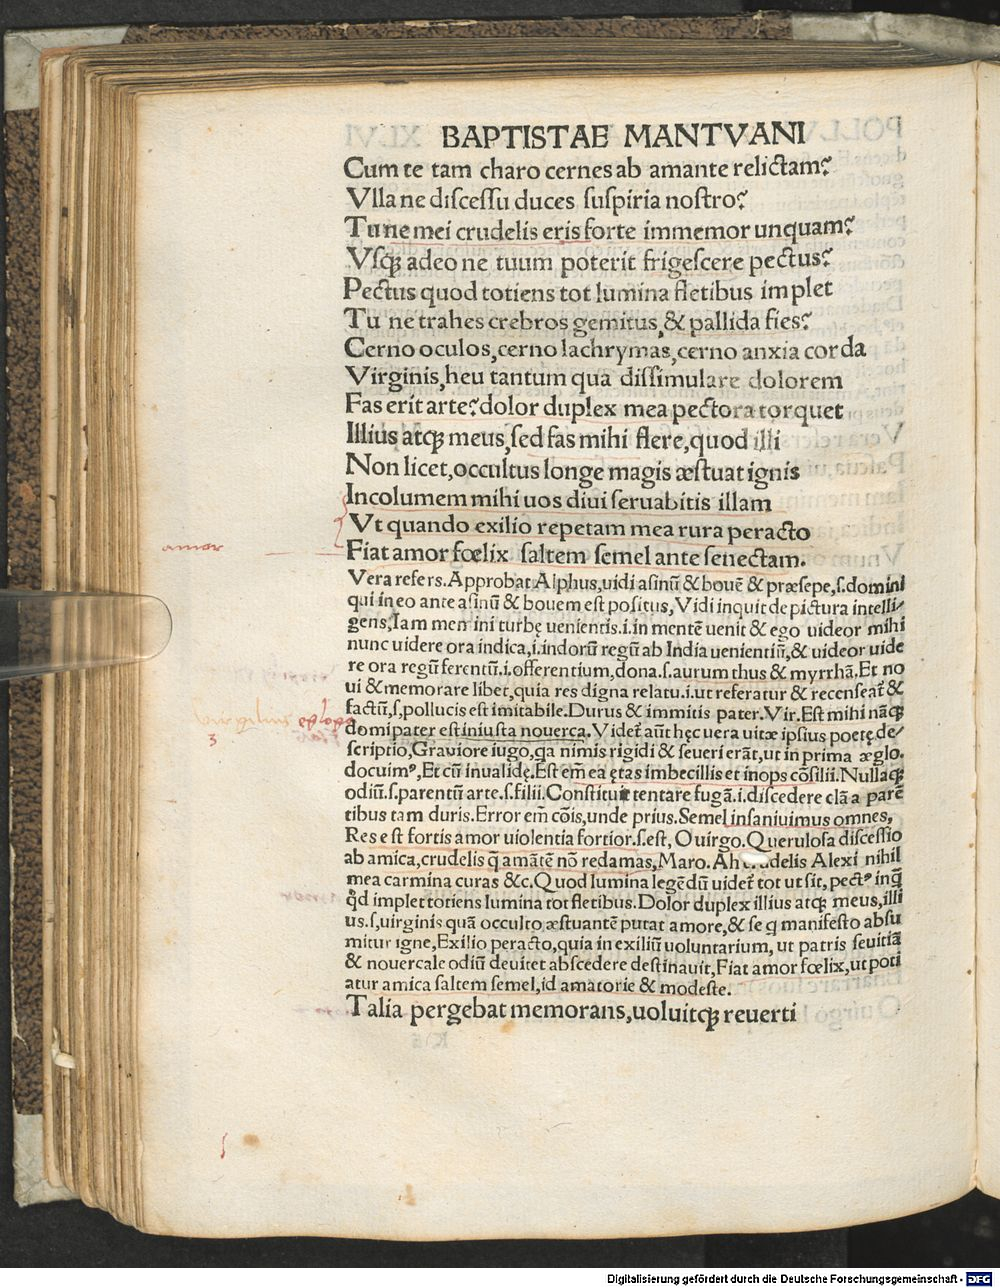 BAPTISTAE MANTVANI
Cum te tam charo cernes ab amante relictam?
Vlla ne discessu duces suspiria nostro?
Tu ne mei crudelis eris forte immemor unquam?
Vsq; adeo ne tuum poterit frigescere pectus?
Pectus quod totiens tot lumina fletibus implet
Tu ne trahes crebros gemitus, & pallida fies?
Cerno oculos, cerno lachrymas, cerno anxia corda
Virginis, heu tantum qua dissimulare dolorem
Fas erit arte? dolor duplex mea pectora torquet
Illius atq; meus, sed fas mihi flere, quod illi
Non licet, occultus longe magis æstuat ignis
Incolumem mihi uos diui seruabitis illam
Vt quando exilio repetam mea rura peracto
amor
Fiat amor fœlix saltem semel ante senectam.
Vera refers. Approbat Alphus, uidi asinū & bouē & præsepe, s. domini
qui in eo ante asinū & bouem est positus, Vidi inquit de pictura intelli/
gens, Iam memini turbę uenientis. i. in mentē uenit & ego uideor mihi
nunc uidere ora indica, i. indorū regū ab India uenientiū, & uideor uide
re ora regū ferentū. i. offerentium, dona. s. aurum thus & myrrhā, Et no
ui & memorare libet, quia res digna relatu. i. ut referatur & recenseat̃ &
factū, s, pollucis est imitabile. Durus & immitis pater. Vir. Est mihi nāq;
domi pater est iniusta nouerca. Videt̃ aūt hęc uera uitæ ipsius poetę de/
scriptio, Grauiore iugo, qa nimis rigidi & seueri erāt, ut in prima æglo.
docuimꝰ, Et cū inualidę. Est em̄ ea ętas imbecillis et inops cōsilii. Nullaq;
odiū. s. parentū arte. s. filii. Constituit tentare fugā. i. discedere clā a parē
tibus tam duris. Error em̄ cōis, unde prius. Semel insaniuimus omnes,
Res est fortis amor uiolentia fortior. s. est, O uirgo. Querulosa discessio
ab amica, crudelis q̄ amātē nō redamas, Maro. Ah crudelis Alexi nihil
mea carmina curas &c. Quod lumina legēdū uidet̃ tot ut sit, pectꝰ inq̄
q̊d implet totiens lumina tot fletibus. Dolor duplex illius atq; meus, illi
us. s, uirginis quā occulto æstuantē putat amore, & se q manifesto absu
mitur igne, Exilio peracto, quia in exiliū uoluntarium, ut patris seuitiā
& nouercale odiū deuitet abscedere destinauit, Fiat amor fœlix, ut poti
atur amica saltem semel, id amatorie & modeste.
Talia pergebat memorans, uoluitq; reuerti
Digitalisierung gefördert durch die Deutsche Forschungsgemeinschaft - DFG